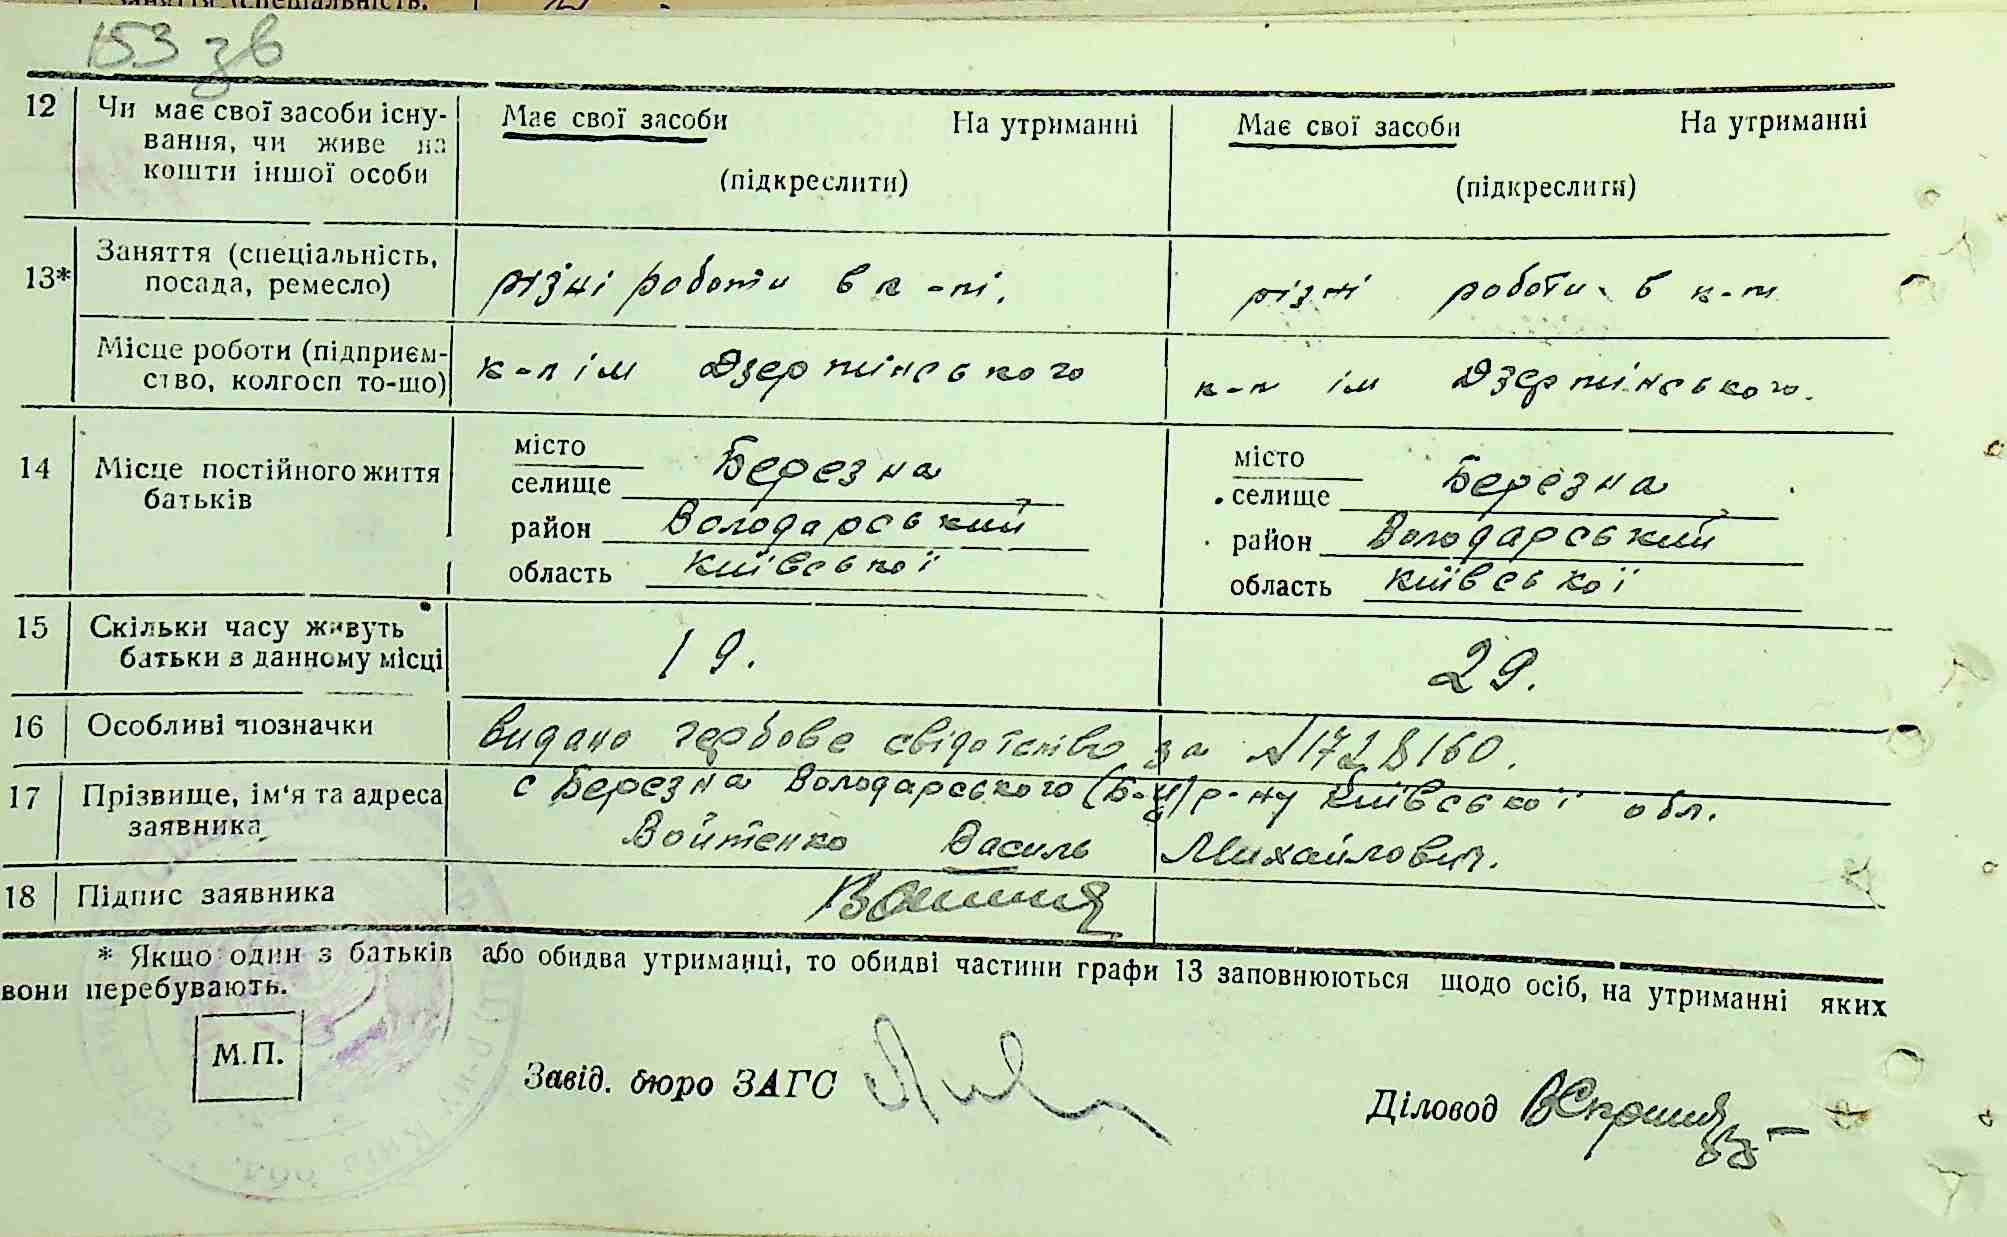 153 зв
12 Чи має свої засоби існу- Має свої засоби На утриманні Має свої засоби На утриманні
вання, чи живе на
кошти іншої особи (підкреслити) (підкреслити)
Заняття (спеціальність,
13* посада, ремесло) різні роботи в к-пі. різні роботи в к-пі
Місце роботи (підприєм- к-п ім Дзержинського к-п ім Дзержинського.
ство, колгосп то-що)
місто місто
14 Місце постійного життя селище Березна селище Березна
батьків район Володарський район Володарський
область Київської область Київської
15 Скільки часу живуть 19. 29.
батьки в данному місці
16 Особливі позначки Видано гербове свідотство за №1728160.
17 Прізвище, ім'я та адреса с Березна Володарського (Б-Ц) р-ну Київської обл.
заявника Войтенко Василь Михайлович.
18 Підпис заявника
* Якщо один з батьків або обидва утриманці, то обидві частини графи 13 заповнюються щодо осіб, на утриманні яких
вони перебувають.
М.П.
Завід. бюро ЗАГС Діловод